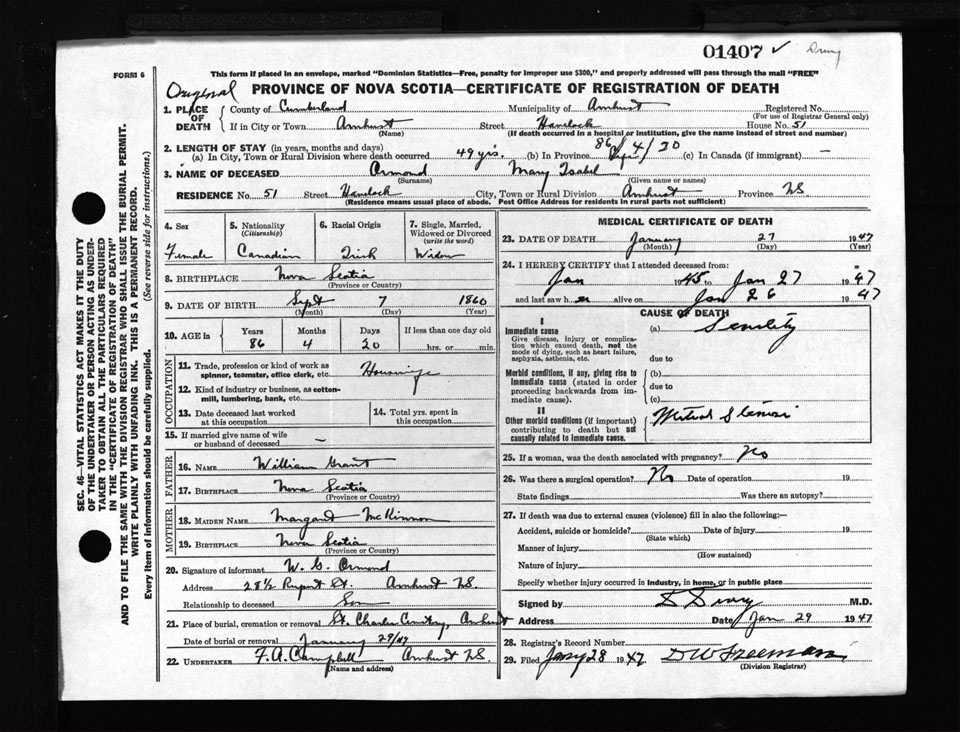 01407 ✓
FORM 6
This form if placed in an envelope, marked "Dominion Statistics—Free, penalty for improper use $300," and properly addressed will pass through the mail "FREE"
Original
PROVINCE OF NOVA SCOTIA—CERTIFICATE OF REGISTRATION OF DEATH
1. PLACE OF DEATH { County of Cumberland Municipality of Amherst Registered No.
(For use of Registrar General only)
If in City or Town Amherst Street Havelock House No. 51
(Name) (If death occurred in a hospital or institution, give the name instead of street and number)
2. LENGTH OF STAY (in years, months and days)
(a) In City, Town or Rural Division where death occurred 49 yrs. (b) In Province 86/4/20 (c) In Canada (if immigrant) —
3. NAME OF DECEASED Ormond Mary Isabel
(Surname) (Given name or names)
RESIDENCE No. 51 Street Havelock City, Town or Rural Division Amherst Province NS
(Residence means usual place of abode. Post Office Address for residents in rural parts not sufficient)
SEC. 46—VITAL STATISTICS ACT MAKES IT THE DUTY
OF THE UNDERTAKER OR PERSON ACTING AS UNDER-
TAKER TO OBTAIN ALL THE PARTICULARS REQUIRED
IN THE "CERTIFICATE OF REGISTRATION OF DEATH"
AND TO FILE THE SAME WITH THE DIVISION REGISTRAR WHO SHALL ISSUE THE BURIAL PERMIT.
WRITE PLAINLY WITH UNFADING INK. THIS IS A PERMANENT RECORD.
Every item of information should be carefully supplied. (See reverse side for instructions.)
4. Sex 5. Nationality (Citizenship) 6. Racial Origin 7. Single, Married, Widowed or Divorced (write the word)
Female Canadian Irish Widow
8. BIRTHPLACE Nova Scotia
(Province or Country)
9. DATE OF BIRTH Sept 7 1860
(Month) (Day) (Year)
10. AGE in { Years Months Days If less than one day old
86 4 20 hrs. or min.
OCCUPATION
11. Trade, profession or kind of work as spinner, teamster, office clerk, etc. Housewife
12. Kind of industry or business, as cotton-mill, lumbering, bank, etc.
13. Date deceased last worked at this occupation
14. Total yrs. spent in this occupation
15. If married give name of wife or husband of deceased —
FATHER
16. NAME William Grant
17. BIRTHPLACE Nova Scotia
(Province or Country)
MOTHER
18. MAIDEN NAME Margaret McKinnon
19. BIRTHPLACE Nova Scotia
(Province or Country)
20. Signature of informant W. G. Ormond
Address 28½ Rupert St. Amherst NS.
Relationship to deceased Son
21. Place of burial, cremation or removal St. Charles Cemetery, Amherst
Date of burial or removal January 29/47
22. UNDERTAKER F. A. Campbell Amherst NS.
(Name and address)
MEDICAL CERTIFICATE OF DEATH
23. DATE OF DEATH January 27 1947
(Month) (Day) (Year)
24. I HEREBY CERTIFY that I attended deceased from:
Jan 1945 to Jan 27 1947
and last saw her alive on Jan 26 1947
CAUSE OF DEATH
I
Immediate cause (a) Senility
Give disease, injury or complication which caused death, not the mode of dying, such as heart failure, asphyxia, asthenia, etc.
due to
Morbid conditions, if any, giving rise to immediate cause (stated in order proceeding backwards from immediate cause). (b)
due to
(c)
II
Other morbid conditions (if important) contributing to death but not causally related to immediate cause. Mitral Stenosis
25. If a woman, was the death associated with pregnancy? No
26. Was there a surgical operation? No Date of operation 19
State findings Was there an autopsy?
27. If death was due to external causes (violence) fill in also the following:—
Accident, suicide or homicide? Date of injury 19
(State which)
Manner of injury
(How sustained)
Nature of injury
Specify whether injury occurred in industry, in home, or in public place
Signed by M.D.
Address Date Jan 29 1947
28. Registrar's Record Number
29. Filed Jany 28 1947 D W Freeman
(Division Registrar)